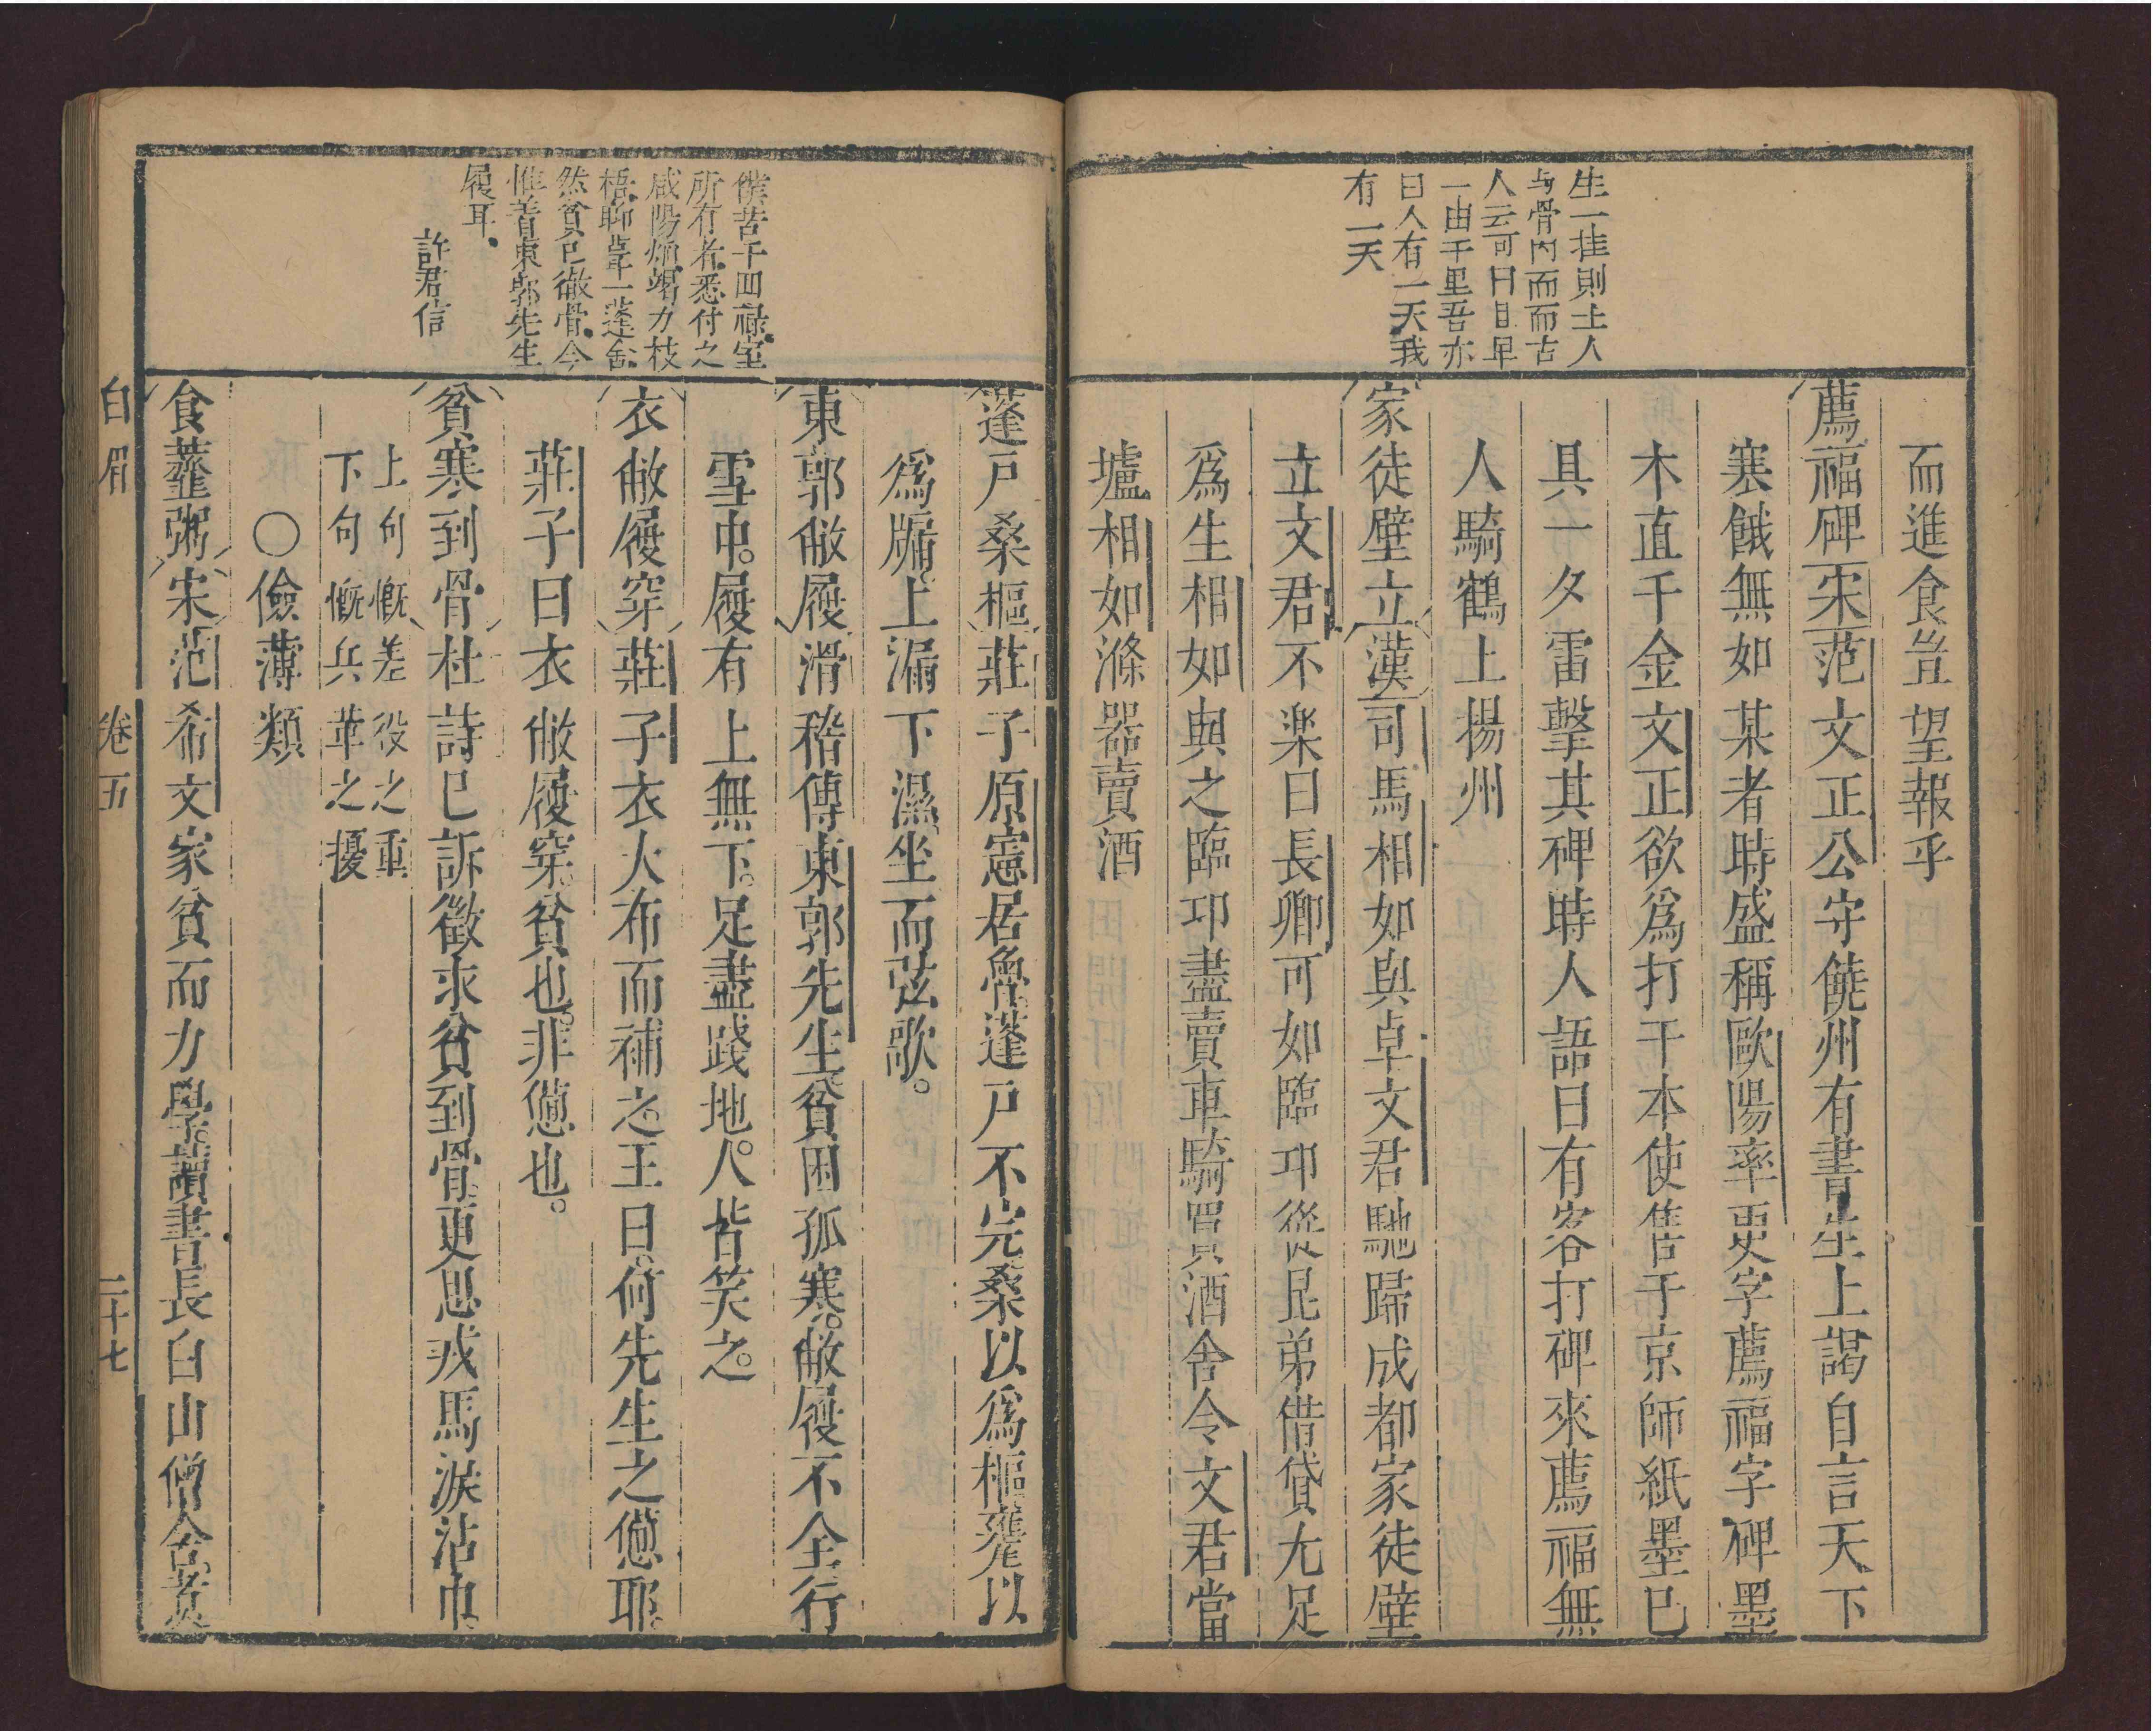 生一挂則士人
与骨肉而而古
人云可日目早
一由千里吾亦
曰人有一天我
有一天
而進食豈望報乎
薦福碑宋范文正公守饒州有書生上謁自言天下
寒餓無如某者時盛稱歐陽率更字薦福字碑墨
木直千金文正欲爲打千本使售于京師紙墨已
具一夕雷擊其碑時人語曰有客打碑來薦福無
人騎鶴上揚州
家徒壁立漢司馬相如與卓文君馳歸成都家徒壁
立文君不楽曰長卿可如臨卭從昆弟借貸尤足
爲生相如與之臨卭盡賣車騎買酒舍令文君當
壚相如滌器賣酒
僕苦千回祿室
所有者悉付之
咸陽煙竭力枝
梧聊葺一蓬舍
然貧已徹骨今
惟着東郭先生
履耳
許君信
蓬戸桑樞莊子原憲居魯蓬戸不完桑以爲樞甕以
爲牖上漏下濕坐而弦歌。
東郭敝履滑稽傳東郭先生貧困孤寒。敝履不全行
雪中。履有上無下。足盡踐地。人皆笑之。
衣敝履穿莊子衣大布而補之。王曰。何先生之憊耶。
莊子曰衣敝履穿。貧也。非憊也。
貧寒到骨杜詩已訴徵求貧到骨。更思戎馬淚沾巾。
上句慨差役之重
下句慨兵革之擾
○儉薄類
食虀粥宋范希文家貧而力學。讀書長白山僧舍。煮
白眉 卷五 二十七